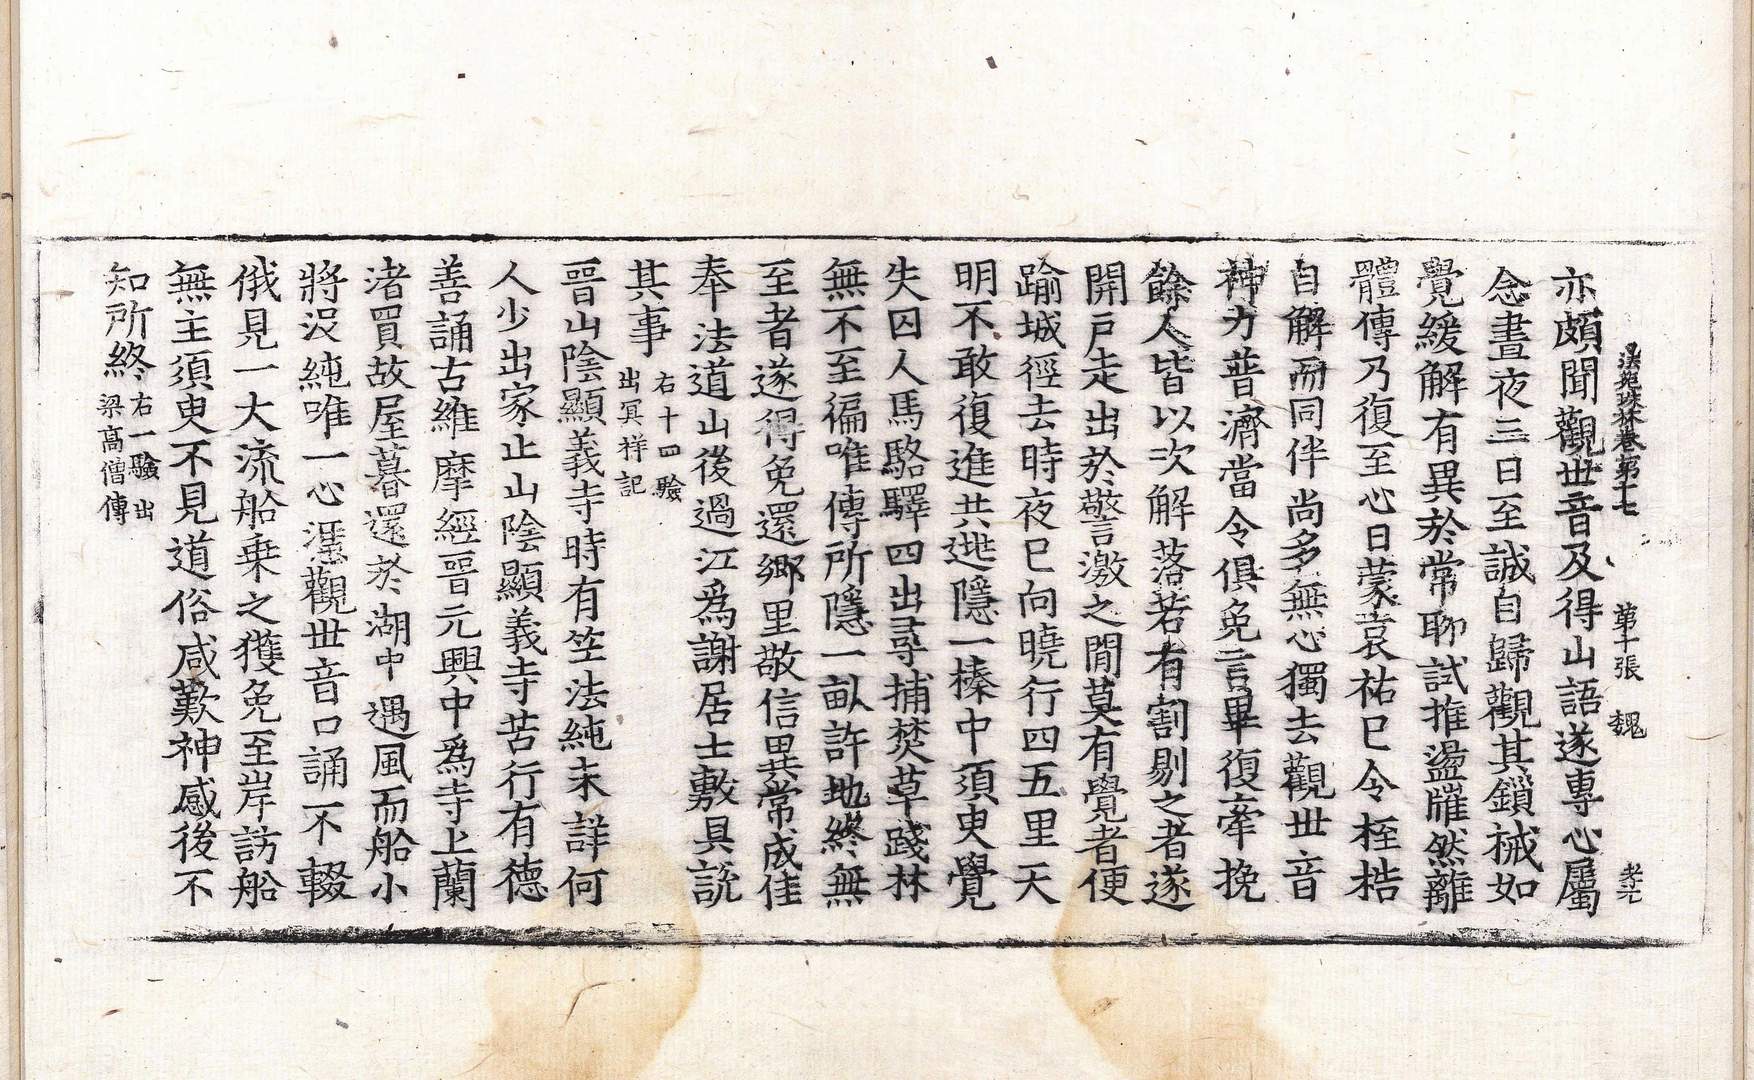 法苑珠林卷第十七 第十張 魏 孝元
亦頗聞觀世音及得山語遂專心屬
念晝夜三日至誠自歸觀其鎖械如
覺緩解有異於常聊試推盪𨿽然離
體傳乃復至心曰蒙哀祐已令桎梏
自解而同伴尚多無心獨去觀世音
神力普濟當令俱免言畢復牽挽
餘人皆以次解落若有割剔之者遂
開戶走出於警激之間莫有覺者便
踰城徑去時夜已向曉行四五里天
明不敢復進共逃隱一榛中須臾覺
失囚人馬駱驛四出尋捕焚草踐林
無不至徧唯傳所隱一畝許地終無
至者遂得免還鄉里敬信異常咸佳
奉法道山後過江爲謝居士敷具說
其事右十四驗出冥祥記
晉山陰顯義寺時有竺法純未詳何
人少出家止山陰顯義寺苦行有德
善誦古維摩經晉元興中爲寺上蘭
渚買故屋暮還於湖中遇風而船小
將沒純唯一心凴觀世音口誦不輟
俄見一大流船乘之獲免至岸訪船
無主須臾不見道俗咸歎神感後不
知所終右一驗出梁高僧傳